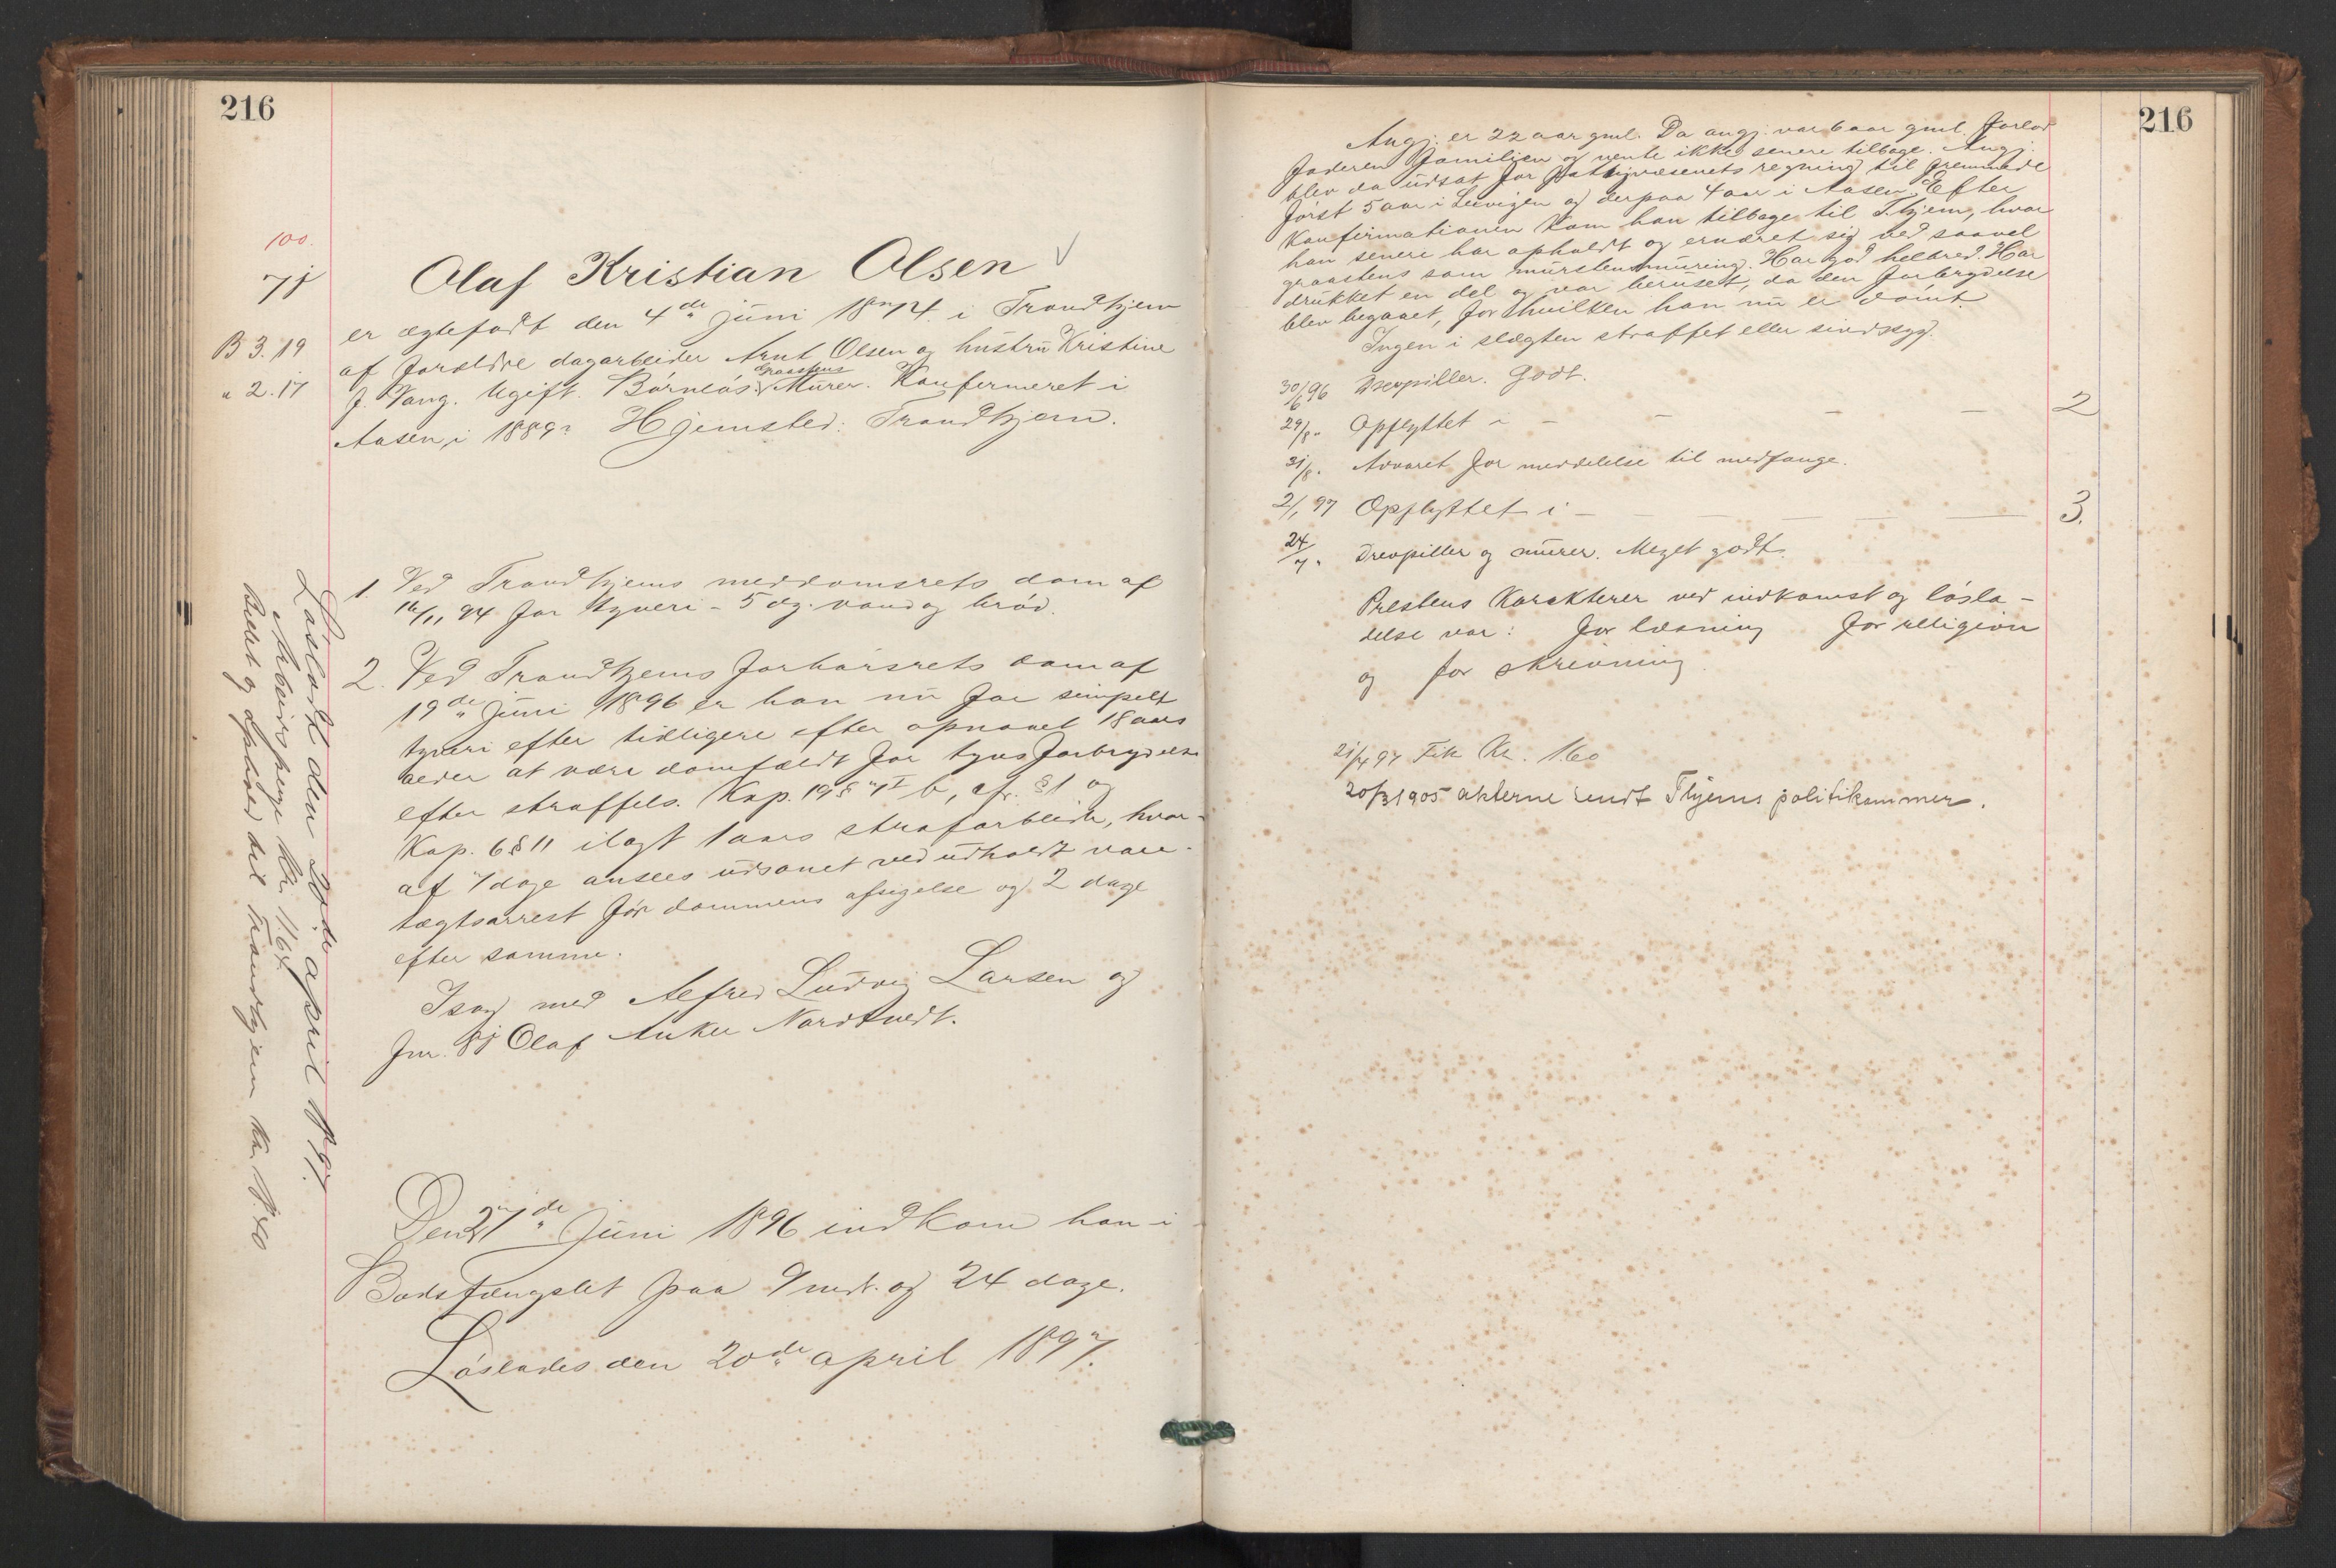 216
100.
7j
B 3.19
" 2.17
Olaf Kristian Olsen
er ægtefødt den 4de juni 1874 i Trondhjem
af forældre dagarbeider Arnt Olsen og hustru Kristine
J. Vang. Ugift. Børnløs. Graastens Murer. Konfirmeret i
Aasen i 1889. Hjemsted: Trondhjem.
1. Ved Trondhjems meddomsrets dom af
16/11 94 for tyveri - 5 dg. vand og brød.
2. Ved Trondhjems Forhørsrets dom af
19de juni 1896 er han nu for simpelt
tyveri efter tidligere efter opnaaet 18 aars
alder at være domfældt for tyvsforbrydelse
efter straffels. Kap. 19 § 1 b, cfr. § 1 og
Kap. 6 § 11 ilagt 1 aars strafarbeide, hvor-
af 7 dage ansees udsonet ved udholdt vare-
tægtsarrest før dommens afsigelse og 2 dage
efter samme.
I sag med Alfred Ludvig Larsen og
fnr. 8j Olaf Anker Nordtvedt.
Den 27de Juni 1896 indkom han i
Bodsfængslet paa 9 mdr. og 24 dage.
Løslades den 20de april 1897.
Løsladt den 20de april 1897.
Arbeidspenge Kr. 11.64
Billet og ophold til Trondhjem Kr.
216
Angj. er 22 aar gml. Da angj. var 6 aar gml. forlod
faderen familjen og vente ikke senere tilbage. Angj.
blev da udsat for fattigvæsenets regning til fremmede
først 5 aar i Levigen og derpaa 4 aar i Aasen. Efter
Konfirmationen kom han tilbage til T.hjem, hvor
han senere har opholdt og ernæret sig ved saavel
graastens som murstensmuring. Har god helbred. Har
drukket en del og var beruset, da den forbrydelse
blev begaaet, for hvilken han nu er dømt.
Ingen i slægten straffet eller sindssyg.
30/6 96 Drevpiller. Godt.
29/8 " Opflyttet i - - - - 2
31/8 " Advaret for meddelelse til medfange.
2/1 97 Opflyttet i - - - - 3.
24/4 " Drevpiller og murer. Meget godt.
Prestens Karakterer ved indkomst og løsla-
delse var: for læsning for religion
og for skrivning.
21/4 97 Fik Kr. 1.60
20/3 1905 akterne sendt T.hjems politikammer.